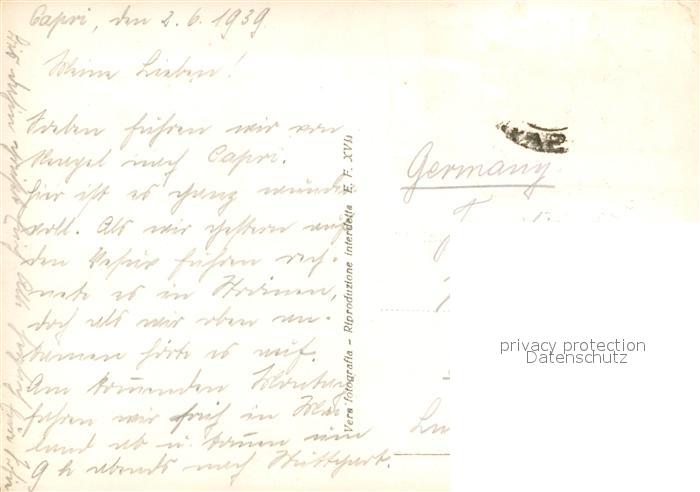 Capri, den 2.6.1939
Meine Lieben!
Soeben fuhren wir von
Neapel nach Capri.
Hier ist es ganz wunder
voll. Als wir gestern auf
den Vesuv fuhren reg-
nete es in Strömen,
doch als wir oben an-
kamen hörte es auf.
Am kommenden Montag
fahren wir früh in Mai
land ab u. kommen um
9 h abends nach Stuttgart.
Vera fotografia - Riproduzione interdetta E. F. XVII
Germany
privacy protection
Datenschutz